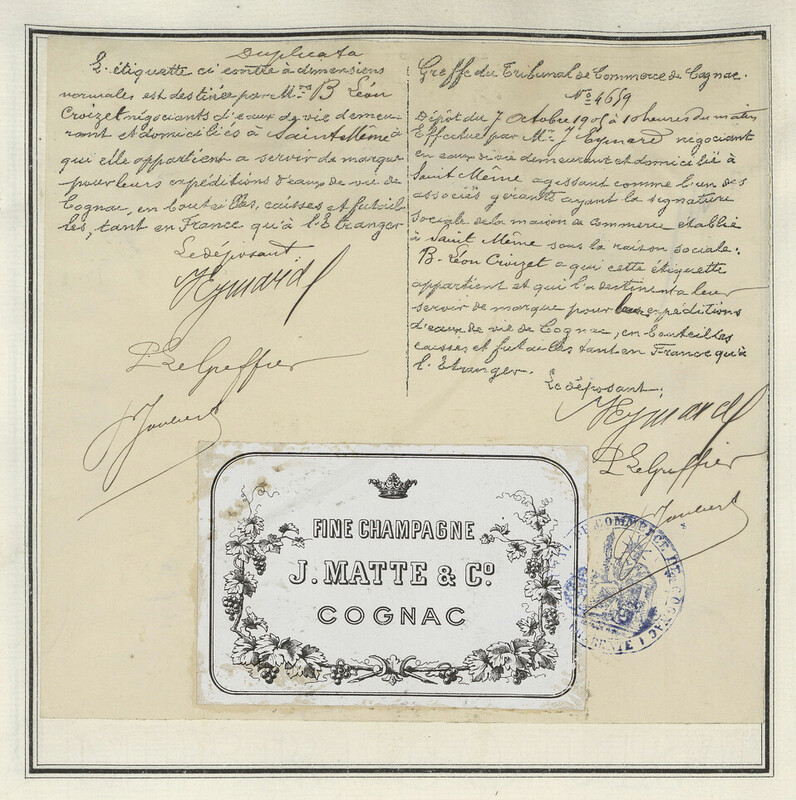 Duplicata
L'étiquette ci contre à dimensions
normales est destinée par Mrs B Léon
Croizet négociants d'eaux de vie demeu-
rant et domiciliés à Saint Même à
qui elle appartient a servir de marque
pour leurs expéditions d'eaux de vie de
Cognac, en bouteilles, caisses et futail-
les, tant en France qu'à l'Etranger
Le déposant
J Eymard
P Le Greffier
Joubert
Greffe du Tribunal de Commerce de Cognac.
No 4659
Dépôt du 7 Octobre 1905 à 10 heures du matin
Effectué par Mr J Eymard négociant
en eaux de vie demeurant et domicilié à
Saint Même agissant comme l'un des
associés gérants ayant la signature
sociale de la maison de commerce établie
à Saint Même sous la raison sociale:
B. Léon Croizet a qui cette étiquette
appartient et qui l'a destinent a leur
servir de marque pour leurs expéditions
d'eaux de vie de Cognac, en bouteilles
caisses et futailles tant en France qu'à
l'Etranger.
Le déposant:
J Eymard
P Le Greffier
Joubert
FINE CHAMPAGNE
J. MATTE & Co
COGNAC
DE COMMERCE DE COGNAC